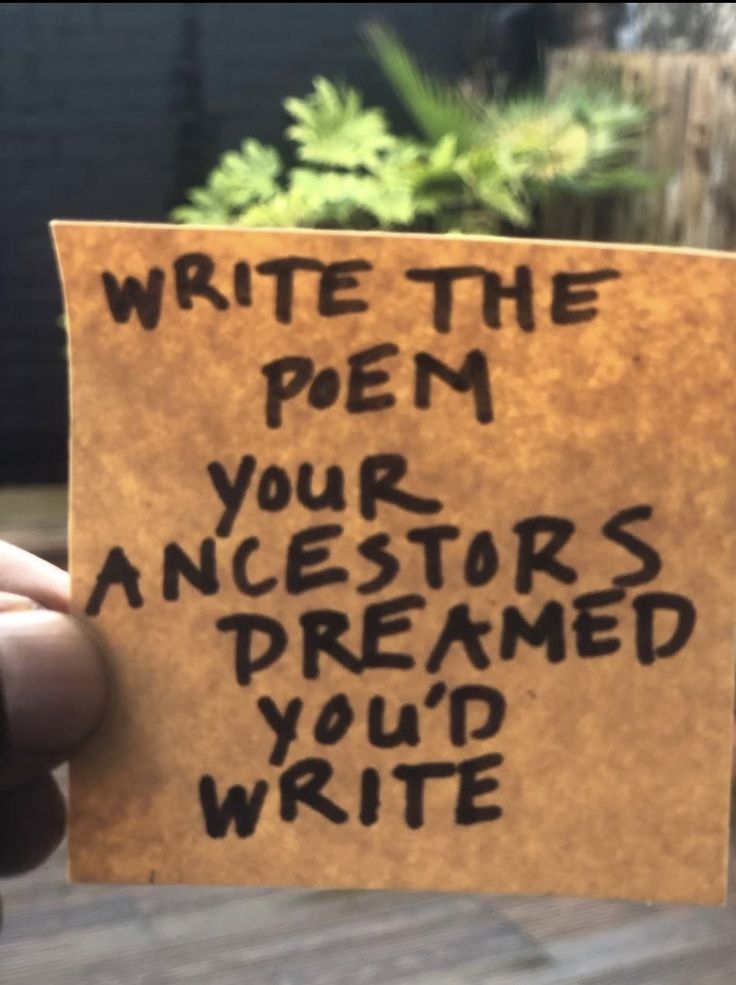 WRITE THE
POEM
YOUR
ANCESTORS
DREAMED
YOU'D
WRITE